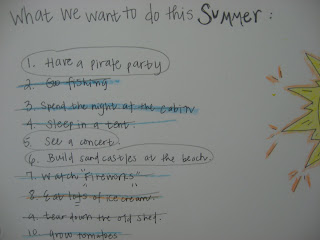 What we want to do this SUMMER:
1. Have a pirate party
2. Go fishing
3. Spend the night at the cabin
4. Sleep in a tent.
5. See a concert.
6. Build sandcastles at the beach.
7. Watch "fireworks"
8. Eat lots of ice cream.
9. tear down the old shed.
10. Grow tomatoes